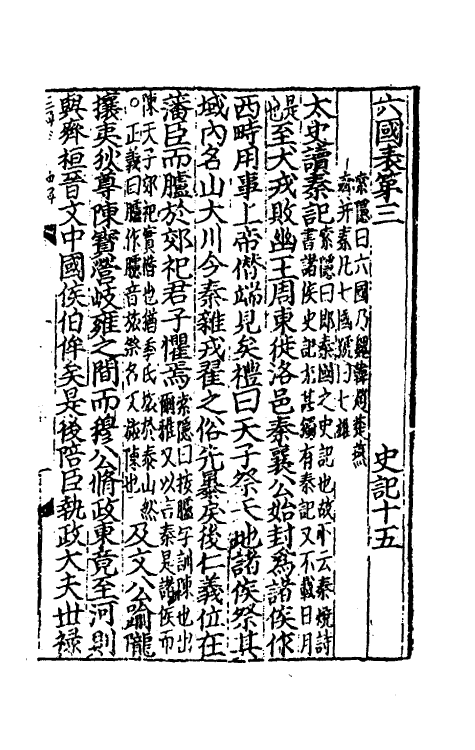 六國表第三　史記十五
索隱曰六國乃魏韓趙楚燕
齊并秦凡七國號曰七雄
太史讀秦記索隱曰即秦國之史記也故下云秦燒詩書諸侯史記尤甚獨有秦記又不載日月
是也至犬戎敗幽王周東徙洛邑秦襄公始封爲諸侯作
西畤用事上帝僭端見矣禮曰天子祭天地諸侯祭其
域內名山大川今秦雜戎翟之俗先暴戾後仁義位在
藩臣而臚於郊祀君子懼焉索隱曰按臚字訓陳也出爾雅又以言秦是諸侯而
陳天子郊祀實僭也猶季氏旅於泰山然○正義曰臚作臚音旅祭名又旅陳也及文公踰隴
攘夷狄尊陳寶營岐雍之間而穆公脩政東竟至河則
與齊桓晉文中國侯伯侔矣是後陪臣執政大夫世祿